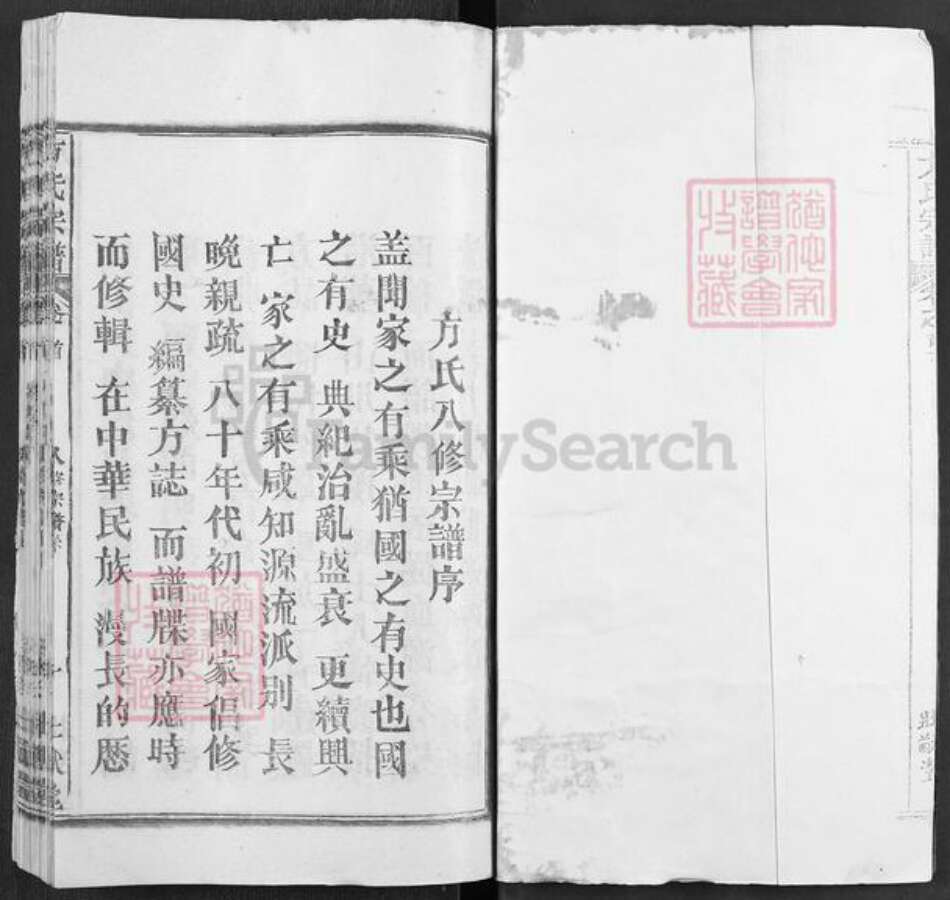 方氏八修宗譜序
盖聞家之有乘猶國之有史也國
之有史 典紀治亂盛衰 更續興
亡 家之有乘咸知源流派別 長
晚親疏 八十年代初 國家倡修
國史 編纂方誌 而譜牒亦應時
而修輯 在中華民族 漫長的歷
方氏宗譜
卷首
八修宗譜序
FamilySearch
猶他家
譜學會
收藏
猶他家
譜學會
收藏